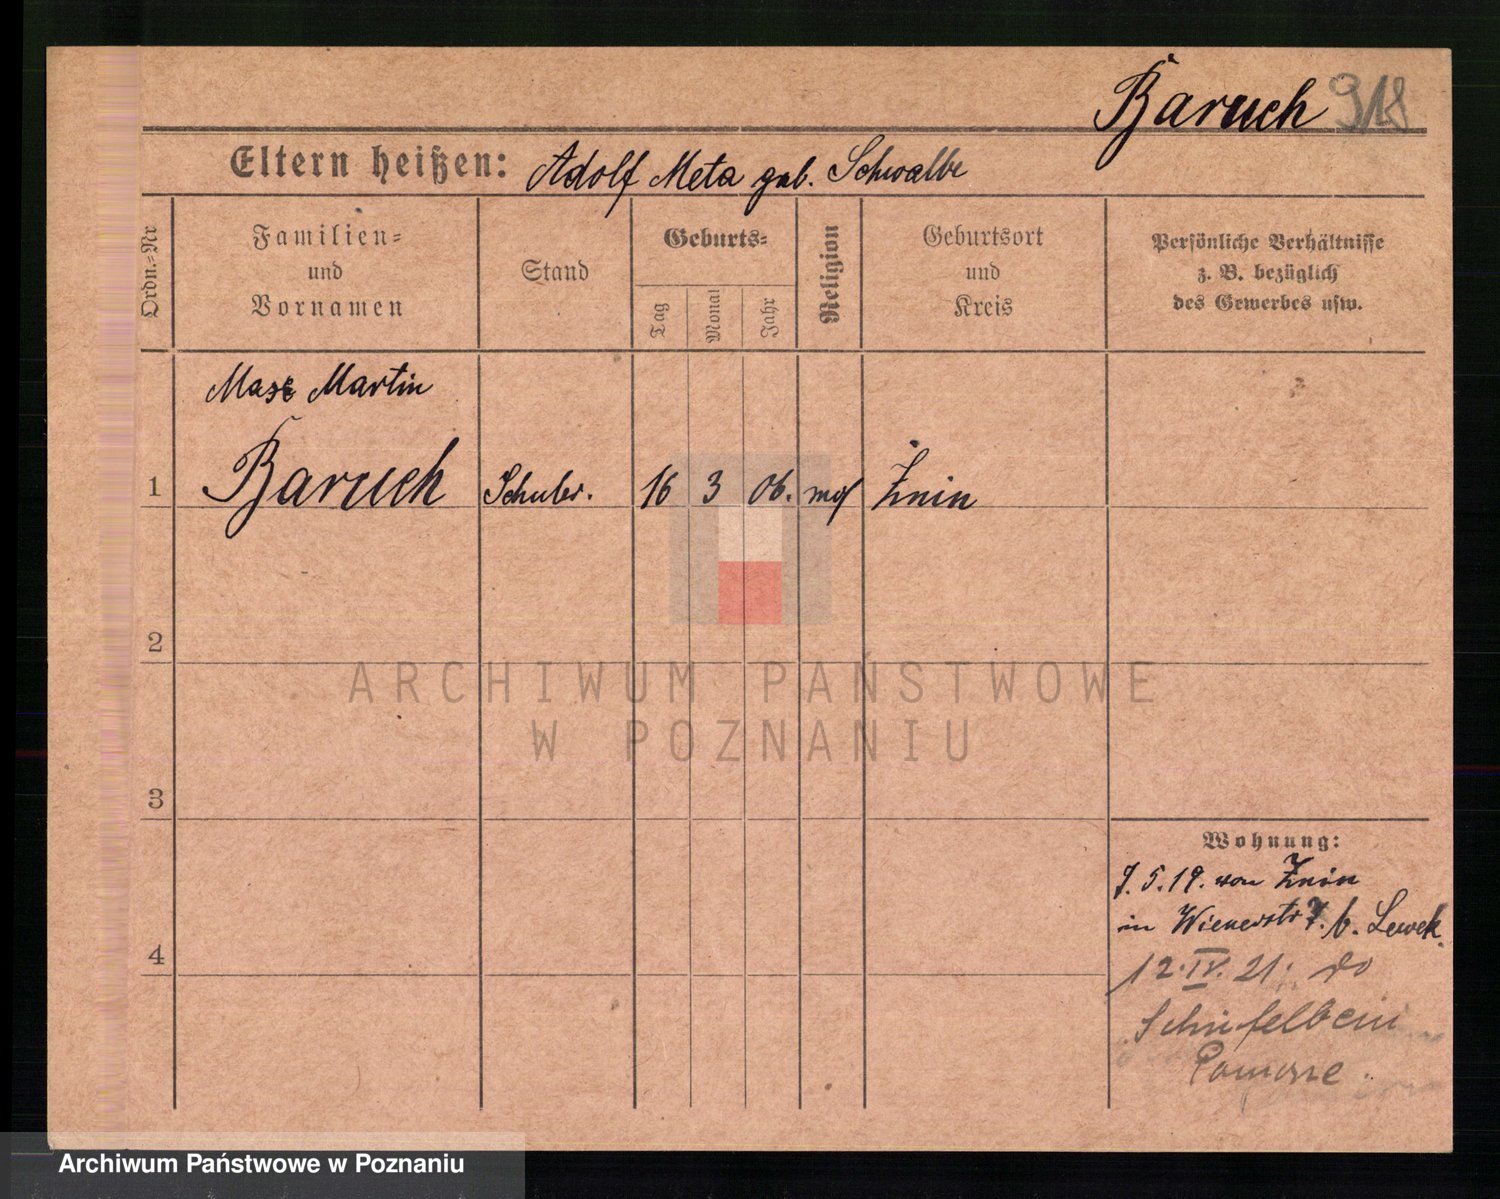 Baruch 918
Eltern heißen: Adolf Meta geb. Schwalbe
Ordn.-Nr
Familien-
und
Vornamen
Stand
Geburts-
Tag
Monat
Jahr
Religion
Geburtsort
und
Kreis
Persönliche Verhältnisse
z. B. bezüglich
des Gewerbes usw.
Max Martin
1 Baruch Schüler. 16 3 06. mos Znin
2
3
4
Wohnung:
7.5.19. von Znin
in Wienerstr 7. b. Lewek.
12.IV.21. do
Schiefelbein
Pomorze
ARCHIWUM PAŃSTWOWE
W POZNANIU
Archiwum Państwowe w Poznaniu